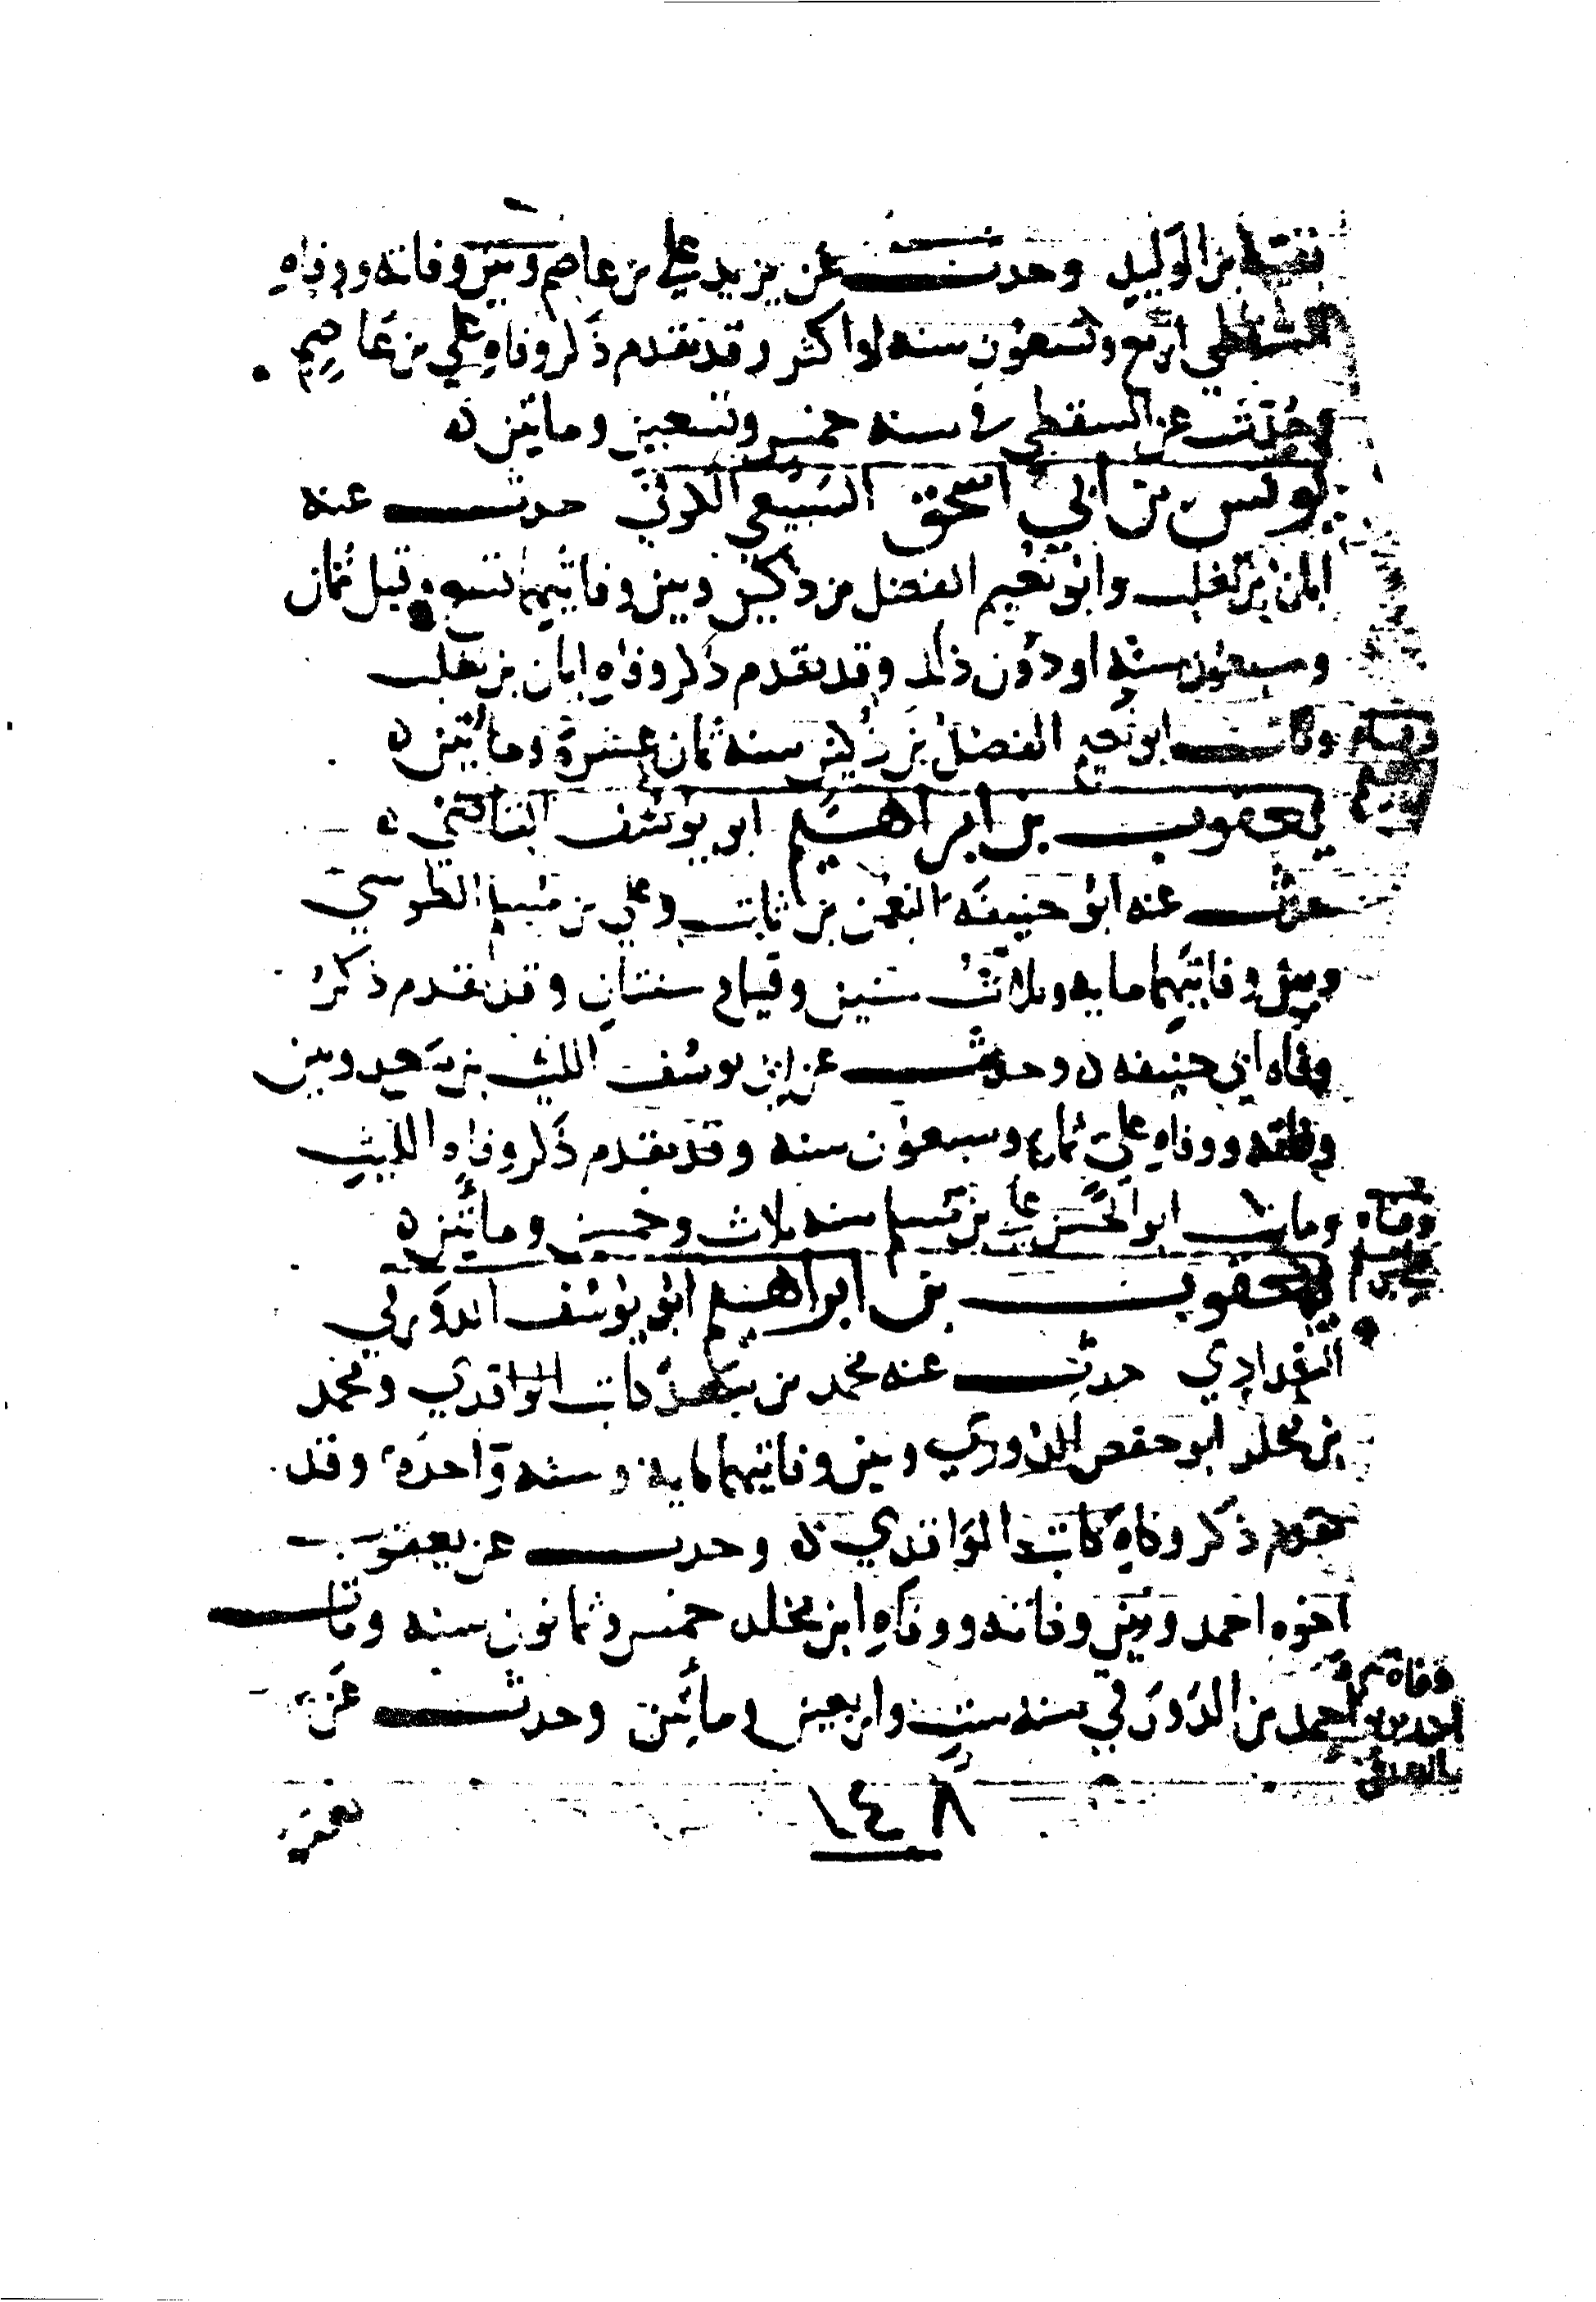 بقية بن الوليد وحدث عن يزيد علي بن عاصم وبين وفاته ووفاه
السقطي اربع وتسعون سنه او اكثر وقد تقدم ذكر وفاه علي بن عاصم
وحدث عن السقطي في سنه خمس وتسعين ومائتين ه
يونس بن ابي اسحق السبيعي الكوفي حدث عنه
ابان بن تغلب وابو نعيم الفضل بن دكين وبين وفاتيهما تسع وقيل ثمان
وسبعون سنه او دون ذلك وقد تقدم ذكر وفاه ابان بن تغلب
وكانت ابو نعيم الفضل بن دكين سنه ثمان عشرة ومائتين ه
يعقوب بن ابراهيم ابو يوسف القاضي ه
حدث عنه ابو حنيفه النعمن بن ثابت وعلي بن مسلم الطوسي
وبين وفاتيهما مايه وثلاث سنين وقيل وسنتان وقد تقدم ذكر
وفاه ابي حنيفه ه وحدث عن ابي يوسف الليث بن سعد وبين
وفاته ووفاه علي ثمان وسبعون سنه وقد تقدم ذكر وفاه الليث
وفاه
ومات ابو الحسن علي بن مسلم سنه ثلاث وخمسين ومائتين ه
يعقوب بن ابراهيم ابو يوسف الدورقي
البغدادي حدث عنه محمد بن سعد كاتب الواقدي ومحمد
بن مخلد ابو حفص الدوري وبين وفاتيهما مايه وسنه واحده وقد
تقدم ذكر وفاه كاتب الواقدي ه وحدث عن يعقوب
اخوه احمد وبين وفاته ووفاه ابن مخلد خمس وثمانون سنه ومات
وفاة
احمد بن الدورقي سنه ست واربعين ومائتين وحدث عن
١٤٨